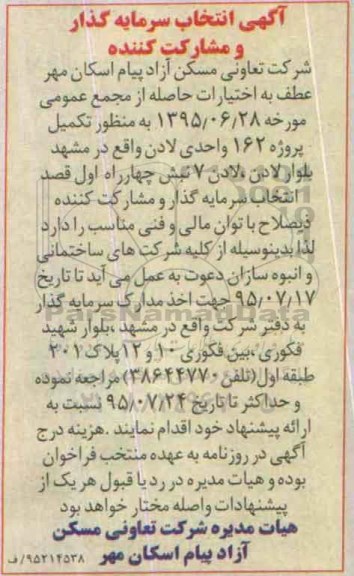 آگهی انتخاب سرمایه گذار
و مشارکت کننده
شرکت تعاونی مسکن آزاد پیام اسکان مهر
عطف به اختیارات حاصله از مجمع عمومی
مورخه ۱۳۹۵/۰۶/۲۸ به منظور تکمیل
پروژه ۱۶۲ واحدی لادن واقع در مشهد
بلوار لادن ،لادن ۷ نبش چهارراه اول قصد
انتخاب سرمایه گذار و مشارکت کننده
ذیصلاح با توان مالی و فنی مناسب را دارد
لذا بدینوسیله از کلیه شرکت های ساختمانی
و انبوه سازان دعوت به عمل می آید تا تاریخ
۹۵/۰۷/۱۷ جهت اخذ مدارک سرمایه گذار
به دفتر شرکت واقع در مشهد ،بلوار شهید
فکوری ،بین فکوری ۱۰ و ۱۲ پلاک ۲۰۱
طبقه اول(تلفن ۳۸۶۴۴۷۷۰) مراجعه نموده
و حداکثر تا تاریخ ۹۵/۰۷/۲۴ نسبت به
ارائه پیشنهاد خود اقدام نمایند .هزینه درج
آگهی در روزنامه به عهده منتخب فراخوان
بوده و هیات مدیره در رد یا قبول هر یک از
پیشنهادات واصله مختار خواهد بود
هیات مدیره شرکت تعاونی مسکن
آزاد پیام اسکان مهر
۹۵۲۱۴۵۳۸/ف
ParsNamadData